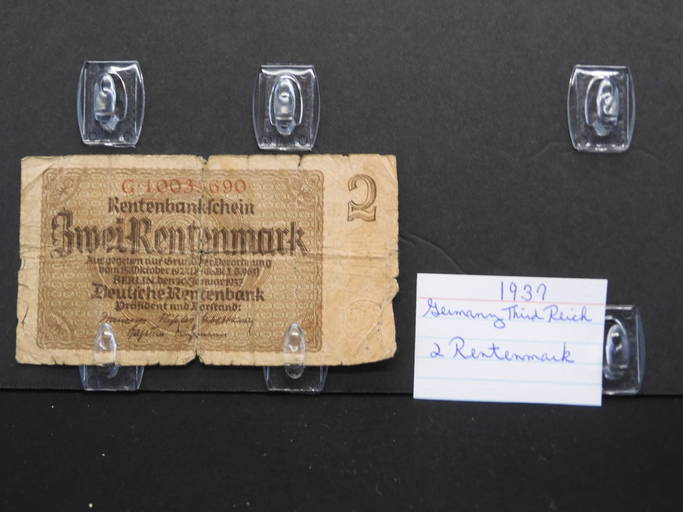 G·1003 690
Rentenbankschein
2
Zwei Rentenmark
Ausgegeben auf Grund der Verordnung
vom 15. Oktober 1923 (RGBl. I S. 963)
BERLIN, den 30. Januar 1937
Deutsche Rentenbank
Präsident und Vorstand:
1937
Germany Third Reich
2 Rentenmark